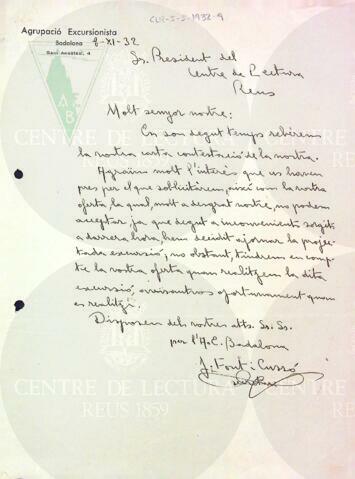 CLR-I-I-1932-9
Agrupació Excursionista
Badalona 8-XI-32
Sant Anastasi, 4
A B
Sr. President del
Centre de Lectura
Reus
Molt senyor nostre:
En son degut temps rebérem
la vostra carta contestació de la nostra.
Agraïm molt l'interès que us haveu
pres per el que sol·licitàrem, així com la vostra
oferta, la qual, molt a desgrat nostre, no podem
acceptar, ja que degut a inconvenients sorgits
a darrera hora, hem decidit ajornar la projec-
tada excursió; no obstant, tindrem en comp-
te la vostra oferta quan realitzem la dita
excursió, avisant-vos oportunament quan
es realitzi.
Disposem dels vostres atts. Ss. Ss.
per l'A.E. Badalona
J. Font i Cussó
CENTRE DE LECTURA
REUS 1859